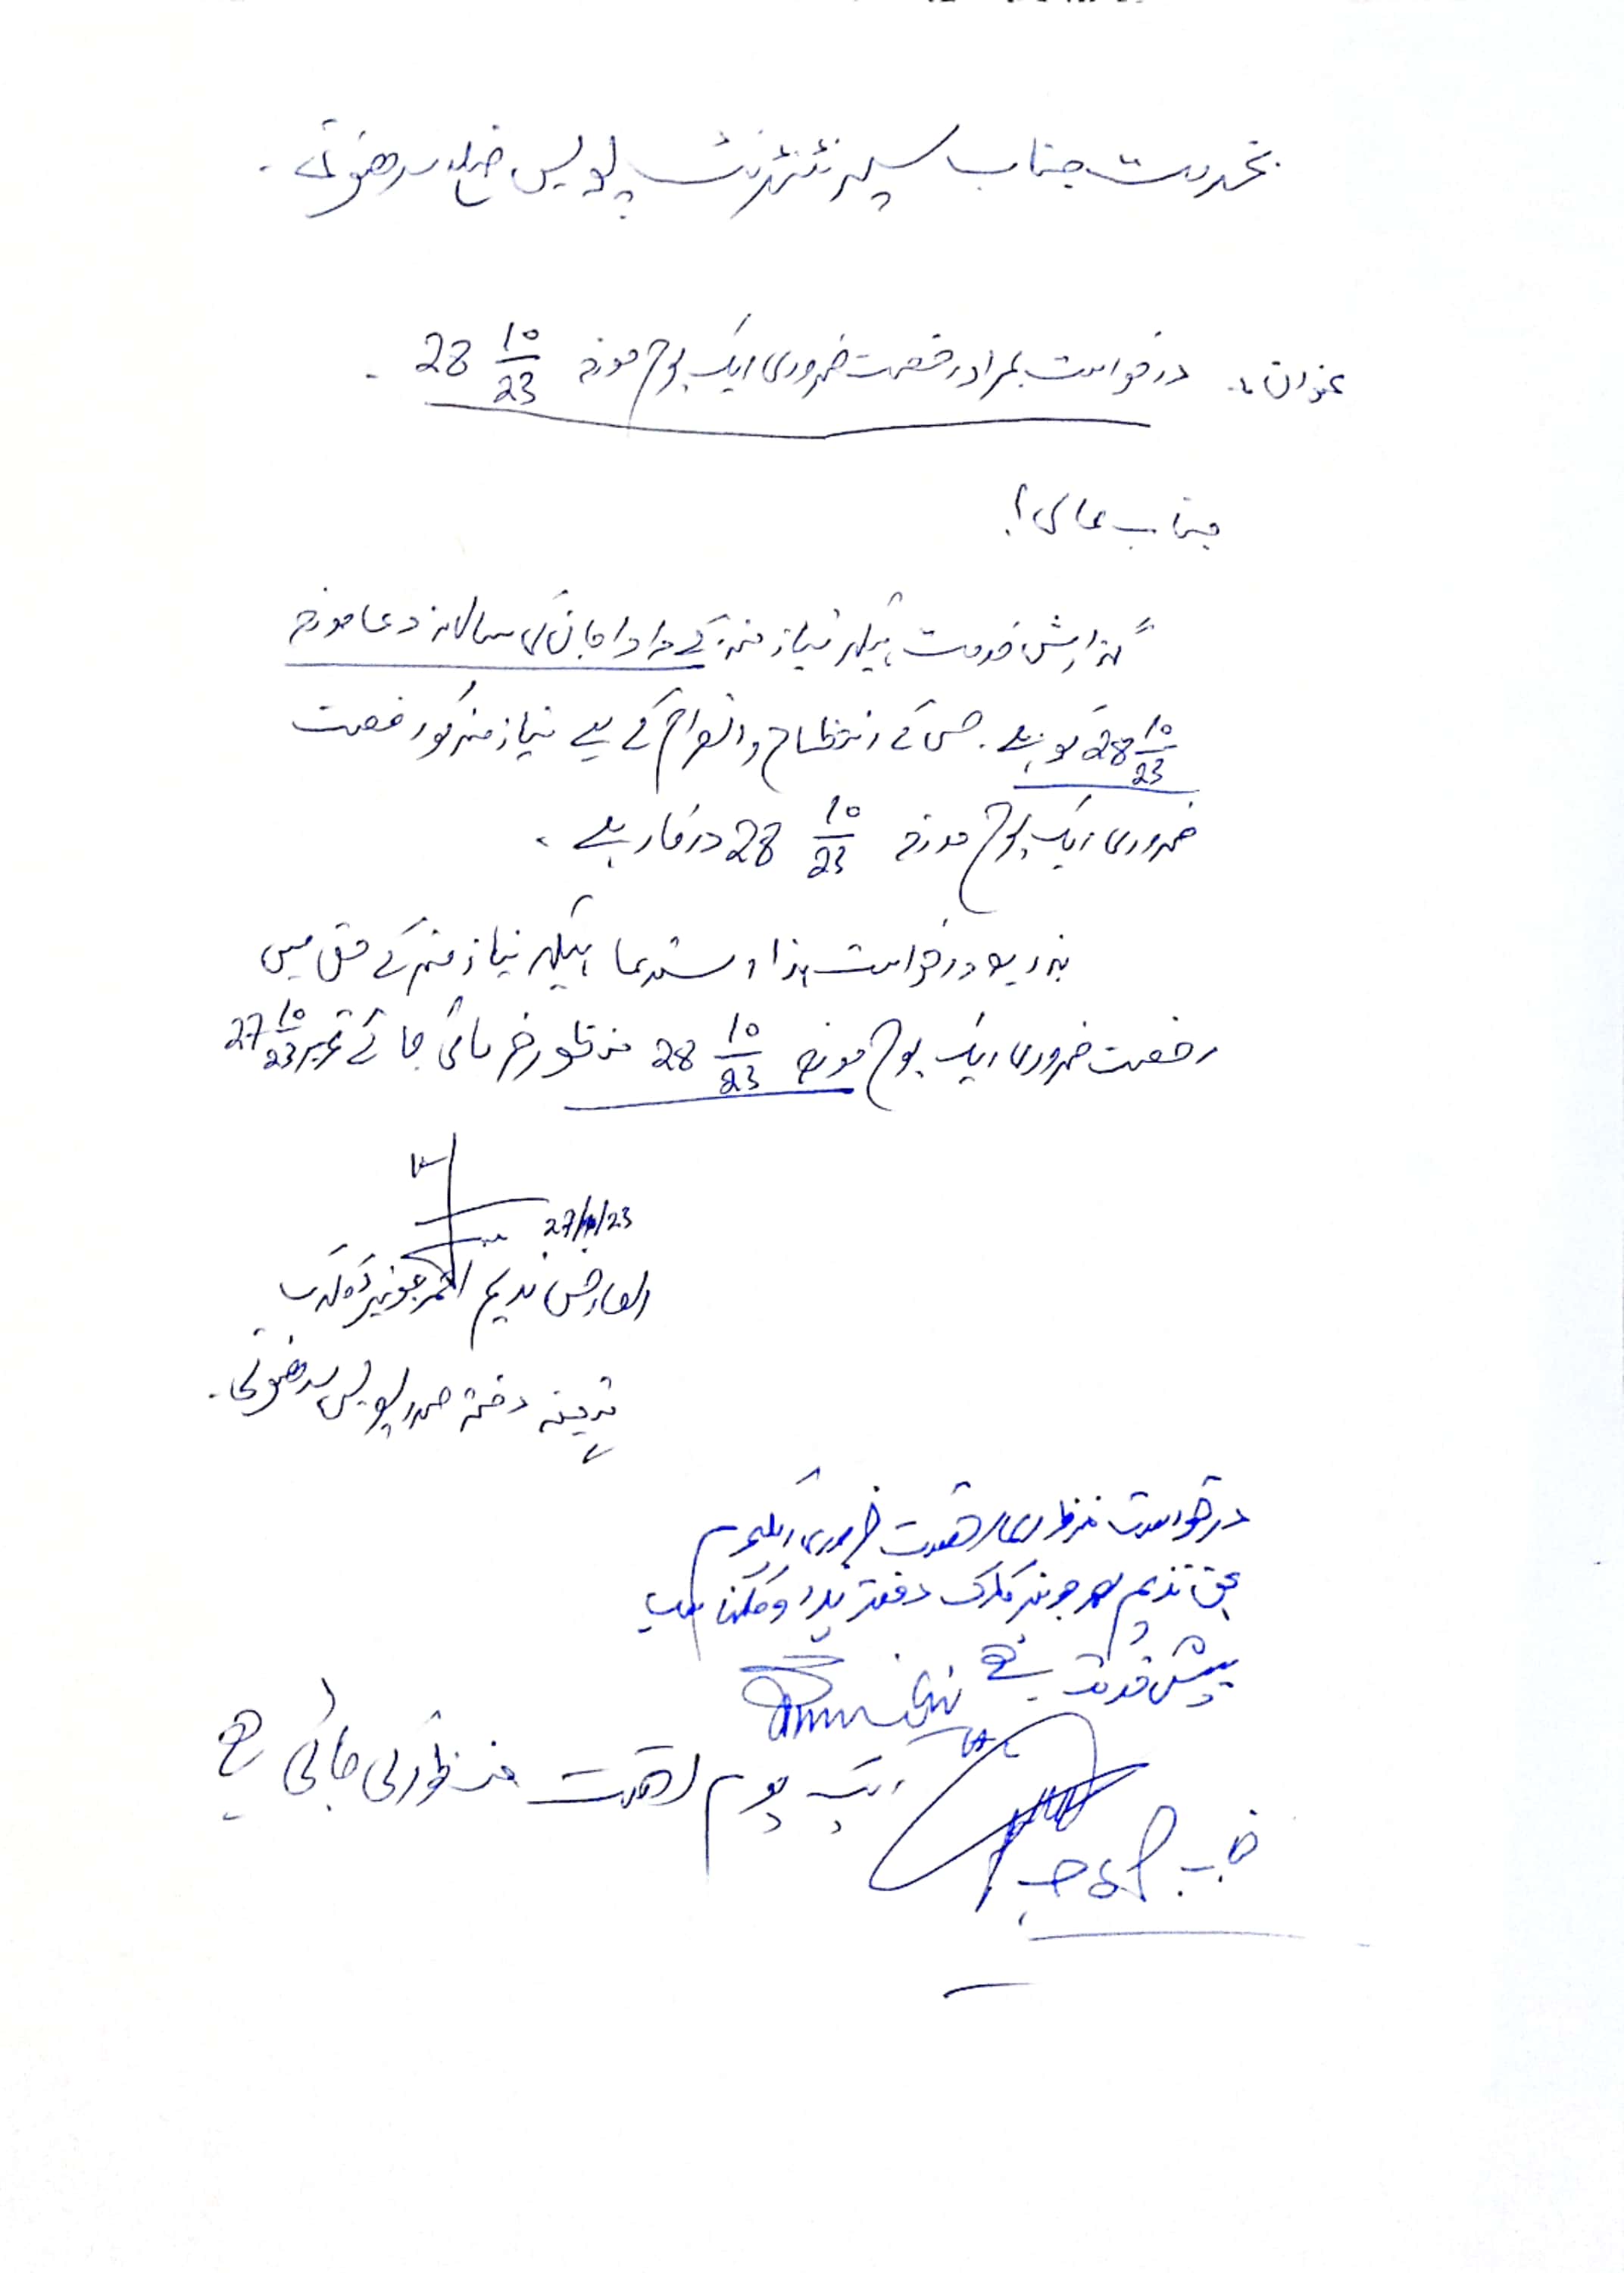 بخدمت جناب سپرنٹنڈنٹ پولیس ضلع سدھنوتی ۔
عنوان:۔ درخواست بمراد رخصت ضروری ایک یوم مورخہ 28 10/23 ۔
جناب عالی!
گزارش خدمت ہیکہ نیازمند کے دادا جان کی سالانہ دعا مورخہ
28 10/23 کو ہے ۔ جس کے انتظام و انصرام کے لیے نیازمند کو رخصت
ضروری ایک یوم مورخہ 28 10/23 درکار ہے ۔
بذریعہ درخواست ہذا استدعا ہیکہ نیازمند کے حق میں
رخصت ضروری ایک یوم مورخہ 28 10/23 منظور فرمائی جائے تحریر 27 10/23
27/10/23
العارض ندیم احمد جونیئر کلرک
تعینہ دفتر صدر پولیس سدھنوتی ۔
درخواست منظوری رخصت ضروری ایک یوم
بحق ندیم احمد جونیئر کلرک دفتر ہذا
پیش خدمت ہے
ایک یوم رخصت منظور کی جاتی ہے
جناب